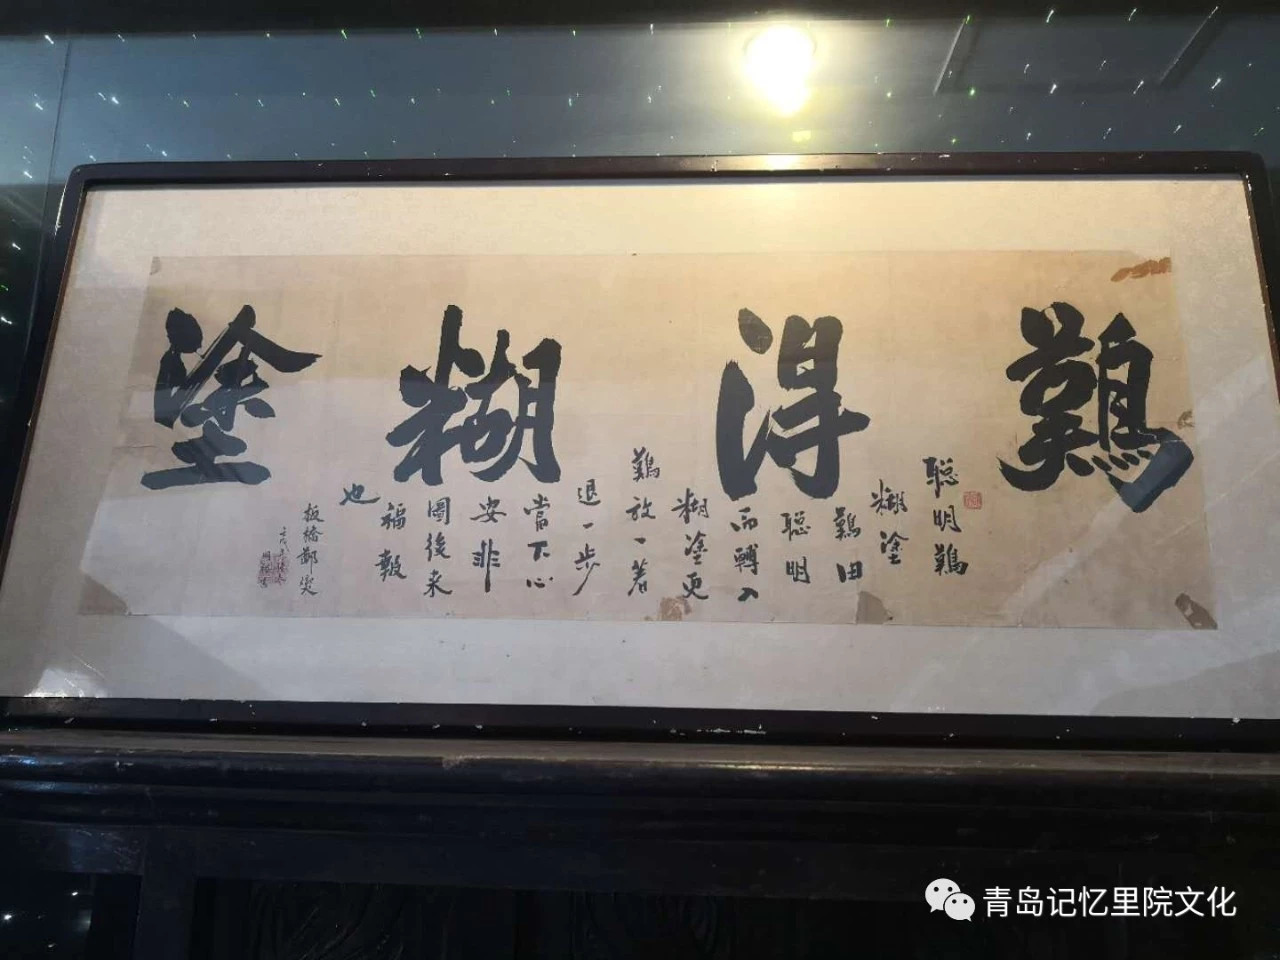 難得糊塗
聰明難
糊塗
難由
聰明
而轉入
糊塗更
難放一著
退一步
當下心
安非
圖後來
福報
也
板橋鄭燮
青岛记忆里院文化